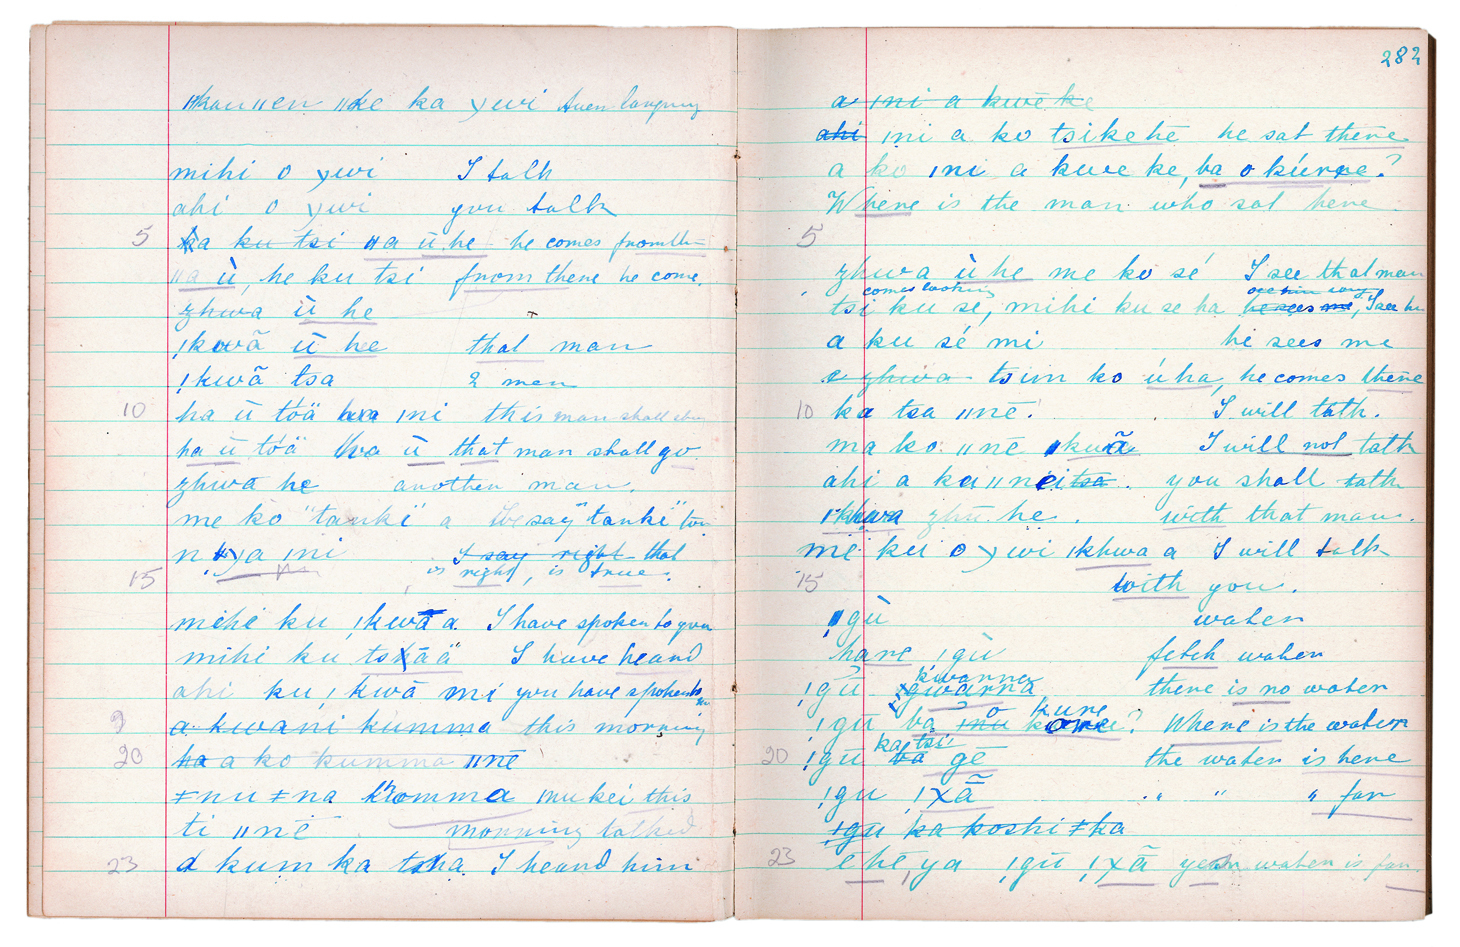 ǁkau ǁen ǁke ka ɣwi
mihi o ɣwi I talk
ahi o ɣwi you talk
5 ha ku tsi ǁa ū he he comes from
ǁa ù, he ku tsi from there he come.
zhwa ū he
ǀkwã ū he that man
ǀkwã tsa 2 men
10 ha ū tóä ǀni this man shall
ha ū tóä ù that man shall go.
zhwa he another man.
me ko "tanki" a We say "tanki"
ɣa ǀni I say right that
15 is right, is true.
mihi ku ǀkwã a. I have spoken to you
mihi ku I have heard
ahi ku ǀkwã mi you have spoken to me
9 a kwani kumma this morning
20 ha a ko kumma ǁnē
ǂnu ǂna komma mu kei this
ti ǁnē morning talked
23 a kum ka I heard him
282
a ǀni a kwe ke
ahi ǀni a ko tsikehe he sat there
a ko ǀni a kwe ke, ba o kúrre?
Where is the man who sat here
5
zhwa ù he me ko sé I see that man
comes looking
tsi ku se, mihi ku se ha he sees me, I see
a ku sé mi he sees me
e zhwa tsim ko ú ha, he comes there
10 ka tsa ǁnē. I will talk.
ma ko ǁnē ǀkwã I will not talk
ahi a ka ǁnei tsa. you shall talk
ǀkhwa zhū he. with that man.
me ku o ɣwi ǀkhwa a I will talk
15 with you.
ǀgù water
hare ǀgù fetch water
kwarra
ǀgū gwarra there is no water
o kure
ǀgū ba ǀnu? Where is the water
ka tsi
20 ǀgū ba gē the water is here
ǀgu ǀxã " " " far
ǀgu ka koshi ǂka
23 ehe ya ǀgū ǀxã water is far.